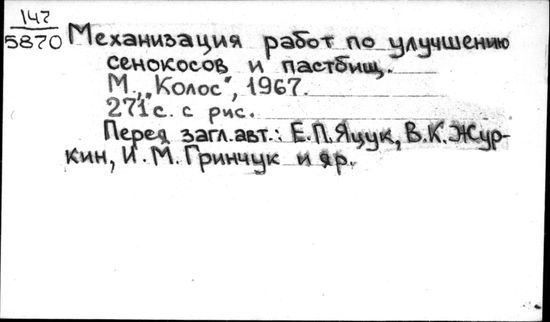 147
5870
Механизация работ по улучшению
сенокосов и пастбищ.
М., "Колос", 1967.
271 с. с рис.
Перед загл. авт.: Е.П. Яцук, В.К. Жур-
кин, И.М. Гринчук и др.